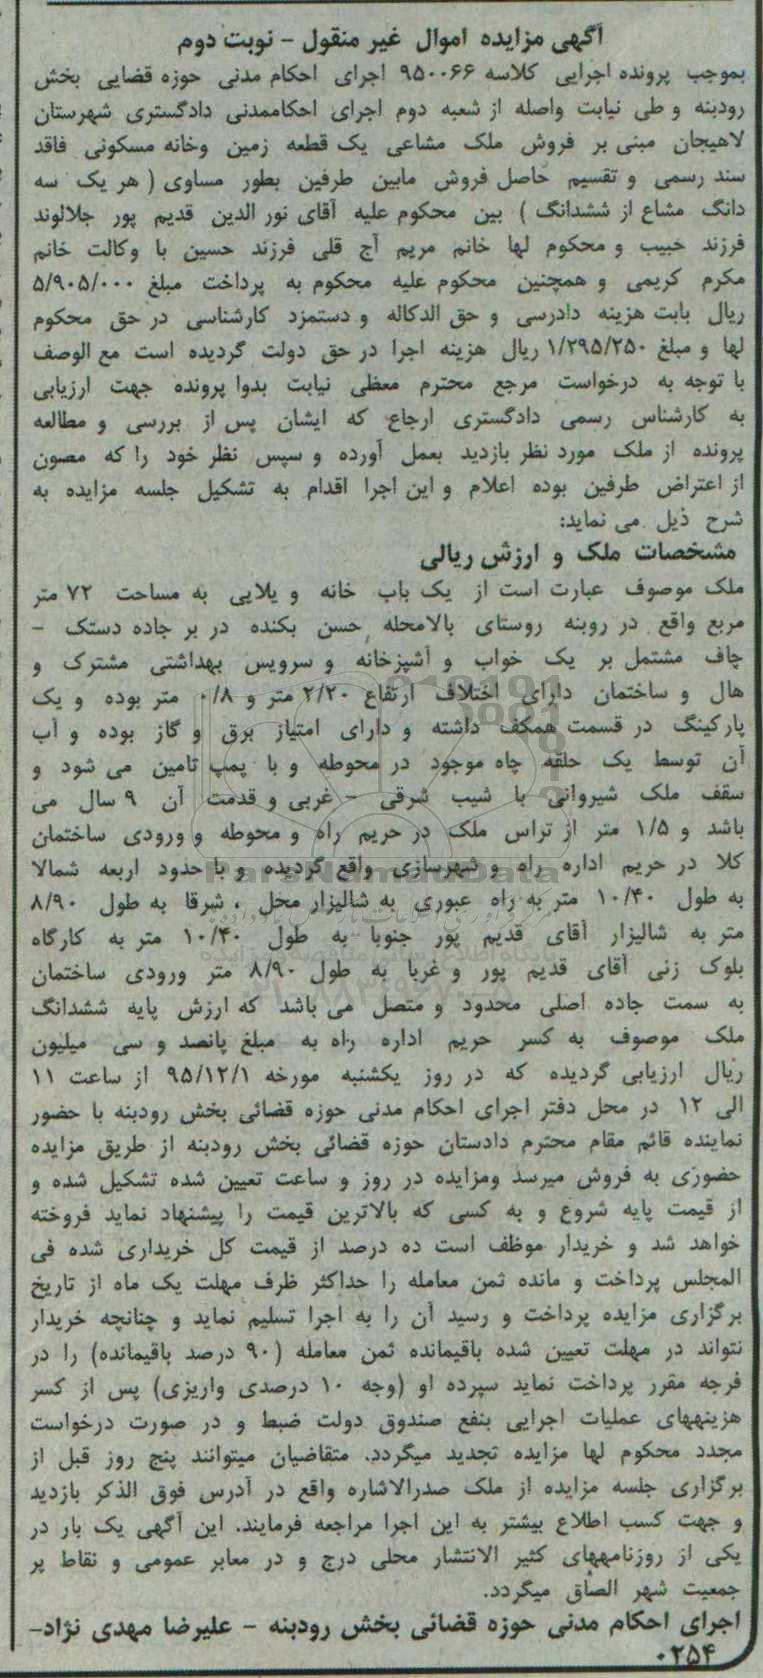 آگهی مزایده اموال غیر منقول - نوبت دوم
بموجب پرونده اجرایی کلاسه ۹۵۰۰۶۶ اجرای احکام مدنی حوزه قضایی بخش
رودبنه و طی نیابت واصله از شعبه دوم اجرای احکاممدنی دادگستری شهرستان
لاهیجان مبنی بر فروش ملک مشاعی یک قطعه زمین وخانه مسکونی فاقد
سند رسمی و تقسیم حاصل فروش مابین طرفین بطور مساوی ( هر یک سه
دانگ مشاع از ششدانگ ) بین محکوم علیه آقای نور الدین قدیم پور جلالوند
فرزند حبیب و محکوم لها خانم مریم آج قلی فرزند حسین با وکالت خانم
مکرم کریمی و همچنین محکوم علیه محکوم به پرداخت مبلغ ۵/۹۰۵/۰۰۰
ریال بابت هزینه دادرسی و حق الدکاله و دستمزد کارشناسی در حق محکوم
لها و مبلغ ۱/۲۹۵/۲۵۰ ریال هزینه اجرا در حق دولت گردیده است مع الوصف
با توجه به درخواست مرجع محترم معطی نیابت بدوا پرونده جهت ارزیابی
به کارشناس رسمی دادگستری ارجاع که ایشان پس از بررسی و مطالعه
پرونده از ملک مورد نظر بازدید بعمل آورده و سپس نظر خود را که مصون
از اعتراض طرفین بوده اعلام و این اجرا اقدام به تشکیل جلسه مزایده به
شرح ذیل می نماید:
مشخصات ملک و ارزش ریالی
ملک موصوف عبارت است از یک باب خانه و یلایی به مساحت ۷۲ متر
مربع واقع در روبنه روستای بالامحله حسن بکنده در بر جاده دستک -
چاف مشتمل بر یک خواب و آشپزخانه و سرویس بهداشتی مشترک و
هال و ساختمان دارای اختلاف ارتفاع ۲/۲۰ متر و ۰/۸ متر بوده و یک
پارکینگ در قسمت همکف داشته و دارای امتیاز برق و گاز بوده و آب
آن توسط یک حلقه چاه موجود در محوطه و با پمپ تامین می شود و
سقف ملک شیروانی با شیب شرقی - غربی و قدمت آن ۹ سال می
باشد و ۱/۵ متر از تراس ملک در حریم راه و محوطه و ورودی ساختمان
کلا در حریم اداره راه و شهرسازی واقع گردیده و با حدود اربعه شمالا
به طول ۱۰/۴۰ متر به راه عبوری به شالیزار محل ، شرقا به طول ۸/۹۰
متر به شالیزار آقای قدیم پور جنوبا به طول ۱۰/۴۰ متر به کارگاه
بلوک زنی آقای قدیم پور و غربا به طول ۸/۹۰ متر ورودی ساختمان
به سمت جاده اصلی محدود و متصل می باشد که ارزش پایه ششدانگ
ملک موصوف به کسر حریم اداره راه به مبلغ پانصد و سی میلیون
ریال ارزیابی گردیده که در روز یکشنبه مورخه ۹۵/۱۲/۱ از ساعت ۱۱
الی ۱۲ در محل دفتر اجرای احکام مدنی حوزه قضائی بخش رودبنه با حضور
نماینده قائم مقام محترم دادستان حوزه قضائی بخش رودبنه از طریق مزایده
حضوری به فروش میرسد ومزایده در روز و ساعت تعیین شده تشکیل شده و
از قیمت پایه شروع و به کسی که بالاترین قیمت را پیشنهاد نماید فروخته
خواهد شد و خریدار موظف است ده درصد از قیمت کل خریداری شده فی
المجلس پرداخت و مانده ثمن معامله را حداکثر ظرف مهلت یک ماه از تاریخ
برگزاری مزایده پرداخت و رسید آن را به اجرا تسلیم نماید و چنانچه خریدار
نتواند در مهلت تعیین شده باقیمانده ثمن معامله (۹۰ درصد باقیمانده) را در
فرجه مقرر پرداخت نماید سپرده او (وجه ۱۰ درصدی واریزی) پس از کسر
هزینههای عملیات اجرایی بنفع صندوق دولت ضبط و در صورت درخواست
مجدد محکوم لها مزایده تجدید میگردد. متقاضیان میتوانند پنج روز قبل از
برگزاری جلسه مزایده از ملک صدرالاشاره واقع در آدرس فوق الذکر بازدید
و جهت کسب اطلاع بیشتر به این اجرا مراجعه فرمایند. این آگهی یک بار در
یکی از روزنامههای کثیر الانتشار محلی درج و در معابر عمومی و نقاط پر
جمعیت شهر الصاق میگردد.
اجرای احکام مدنی حوزه قضائی بخش رودبنه - علیرضا مهدی نژاد-
۰۲۵۴
ParsNamadData